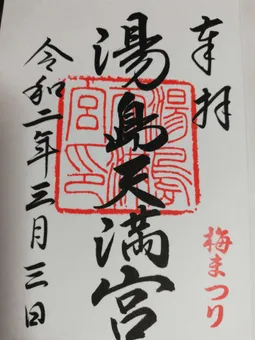 奉拝
湯島天満宮
令和二年三月三日
梅まつり